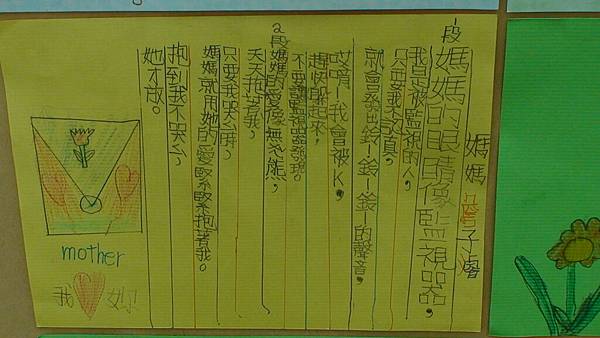 媽媽 子
1段媽媽的眼睛像監視器,
我是被監視的人,
只要我不認真,
就會發出鈴!鈴!鈴!的聲音,
哎唷!我會被K,
趕快躲起來,
不要讓監視器發現。
2段媽媽的愛像無尾熊,
天天抱著我,
只要我哭
媽媽就用她的愛緊緊抱著我。
抱到我不哭
她才放。
mother
我 妳!